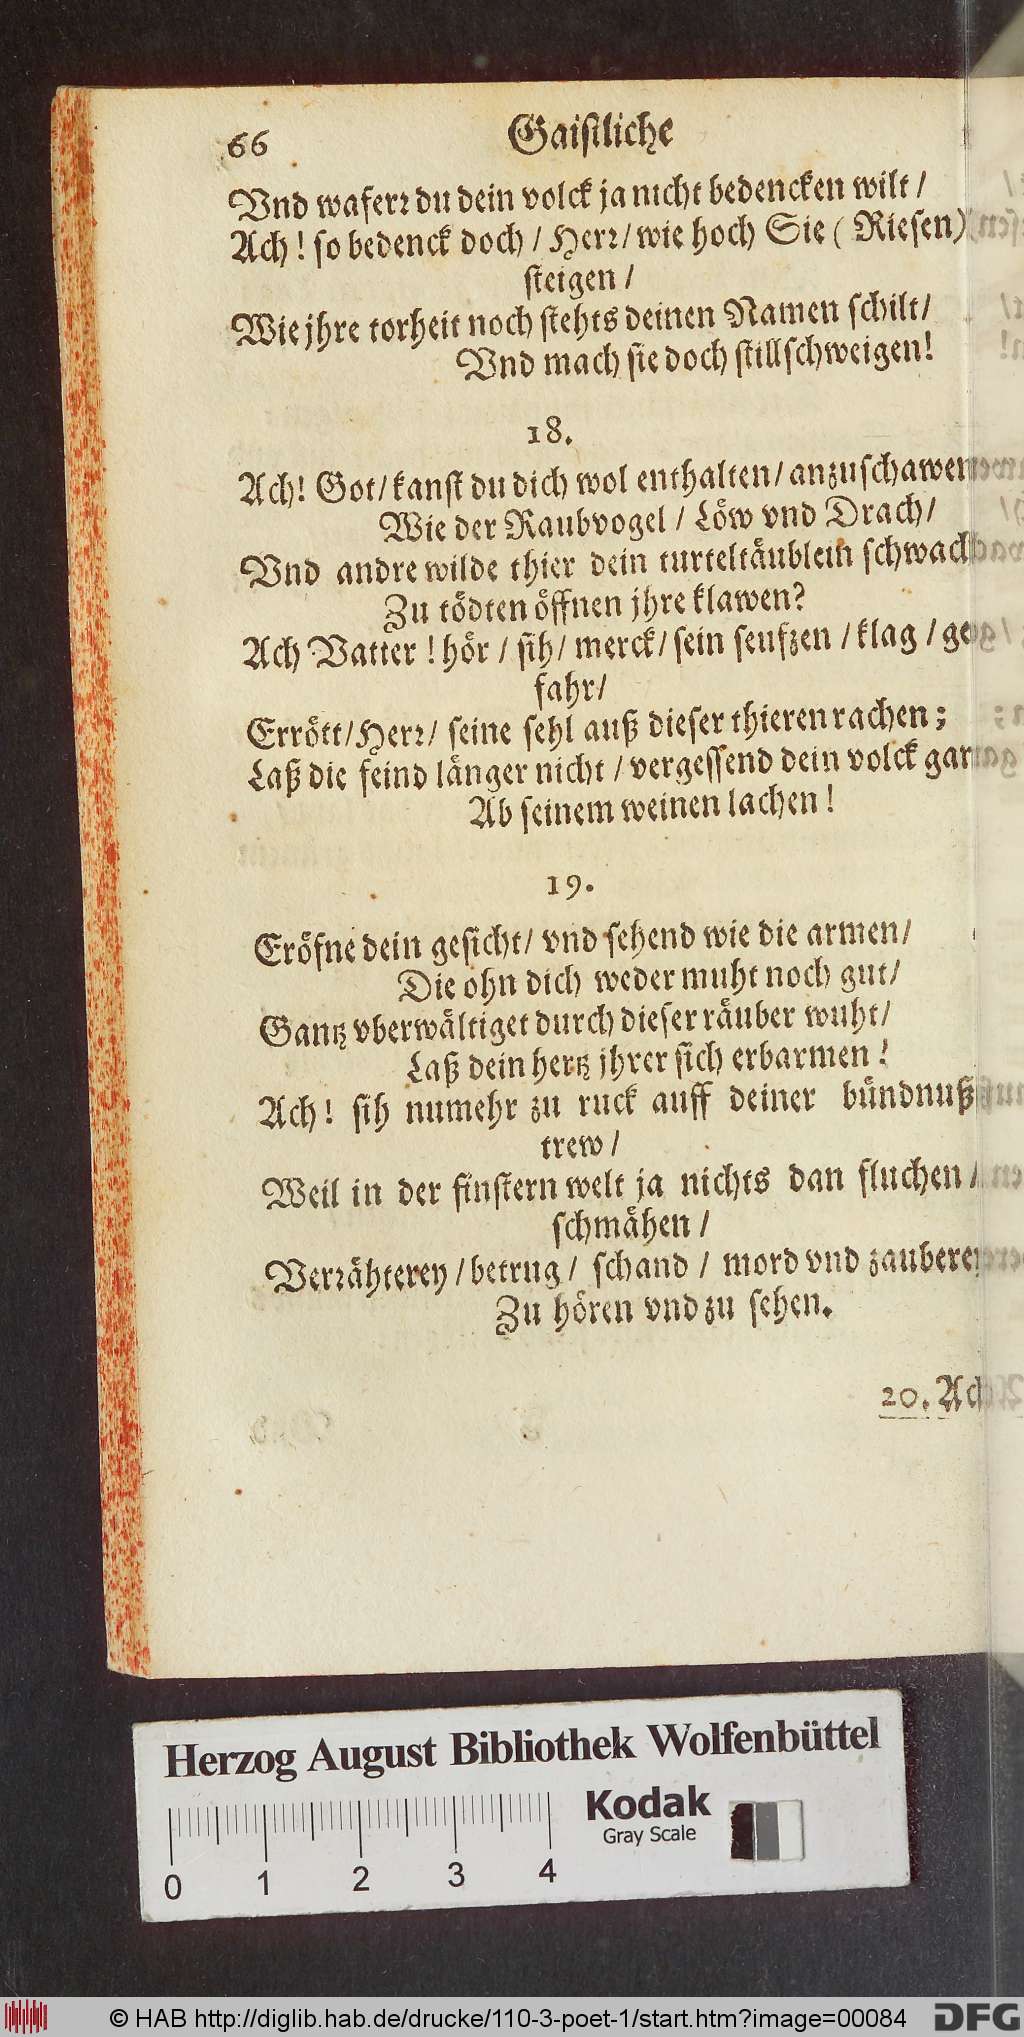 66 Gaistliche
Vnd waferr du dein volck ja nicht bedencken wilt /
Ach ! so bedenck doch / Herr / wie hoch Sie ( Riesen)
steigen /
Wie jhre torheit noch stehts deinen Namen schilt /
Vnd mach sie doch stillschweigen!
18.
Ach! Got / kanst du dich wol enthalten / anzuschawen
Wie der Raubvogel / Löw vnd Drach /
Vnd andre wilde thier dein turteltäublein schwach
Zu tödten öffnen jhre klawen?
Ach Vatter ! hör / sih / merck / sein seufzen / klag / ge
fahr /
Errött / Herr / seine sehl auß dieser thieren rachen ;
Laß die feind länger nicht / vergessend dein volck gar
Ab seinem weinen lachen !
19.
Eröfne dein gesicht / vnd sehend wie die armen /
Die ohn dich weder muht noch gut /
Gantz vberwältiget durch dieser räuber wuht /
Laß dein hertz jhrer sich erbarmen !
Ach ! sih numehr zu ruck auff deiner bündnuß
trew /
Weil in der finstern welt ja nichts dan fluchen /
schmähen /
Verrähterey / betrug / schand / mord vnd zauberey
Zu hören vnd zu sehen.
20. Ach
Herzog August Bibliothek Wolfenbüttel
Kodak
Gray Scale
0 1 2 3 4
© HAB http://diglib.hab.de/drucke/110-3-poet-1/start.htm?image=00084 DFG